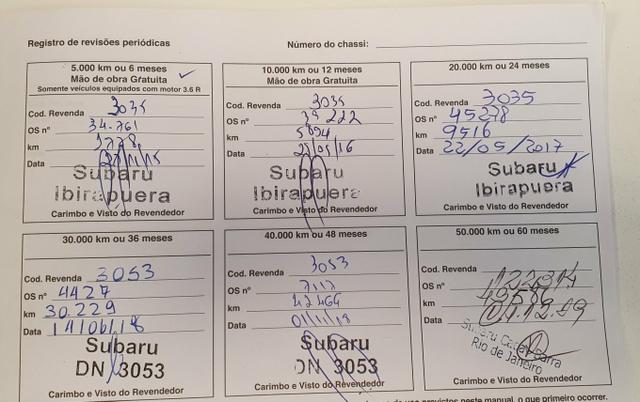 Registro de revisões periódicas
Número do chassi:
5.000 km ou 6 meses
Mão de obra Gratuita
Somente veículos equipados com motor 3.6 R
Cod. Revenda 3035
OS nº 34.761
km
Data
Subaru
Ibirapuera
Carimbo e Visto do Revendedor
10.000 km ou 12 meses
Mão de obra Gratuita
Cod. Revenda 3035
OS nº
km 5894
Data 22/05/16
Subaru
Ibirapuera
Carimbo e Visto do Revendedor
20.000 km ou 24 meses
Cod. Revenda 3035
OS nº 45278
km 9516
Data 22/05/2017
Subaru
Ibirapuera
Carimbo e Visto do Revendedor
30.000 km ou 36 meses
Cod. Revenda 3053
OS nº 4427
km 30.229
Data 14/06/18
Subaru
DN 3053
Carimbo e Visto do Revendedor
40.000 km ou 48 meses
Cod. Revenda 3053
OS nº 7117
km 42464
Data 01/11/18
Subaru
DN 3053
Carimbo e Visto do Revendedor
50.000 km ou 60 meses
Cod. Revenda
OS nº
km
Data
Subaru Barra
Rio de Janeiro
Carimbo e Visto do Revendedor
neste manual, o que primeiro ocorrer.